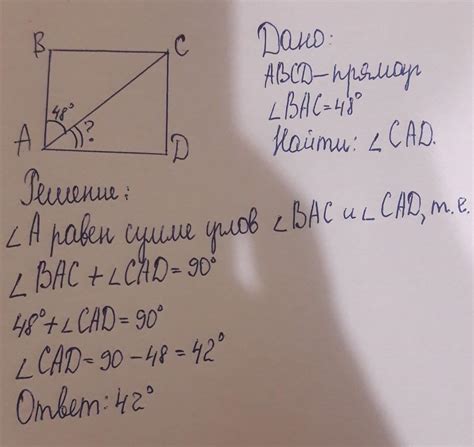 B
C
48°
?
A
D
Дано:
ABCD – прямоуг
∠BAC = 48°
Найти: ∠CAD.
Решение:
∠A равен сумме углов ∠BAC и ∠CAD, т.е.
∠BAC + ∠CAD = 90°
48° + ∠CAD = 90°
∠CAD = 90 – 48 = 42°
Ответ: 42°